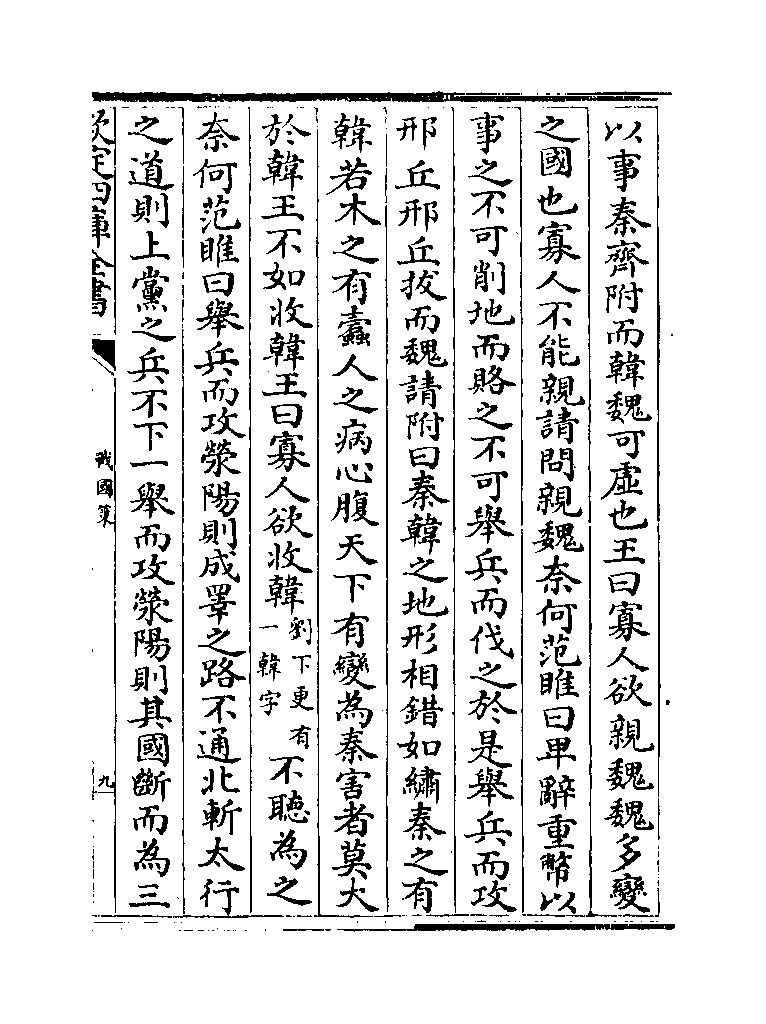 以事秦齊附而韓魏可虛也王曰寡人欲親魏魏多變
之國也寡人不能親請問親魏奈何范睢曰卑辭重幣以
事之不可削地而賂之不可舉兵而伐之於是舉兵而攻
邢丘邢丘拔而魏請附曰秦韓之地形相錯如繡秦之有
韓若木之有蠹人之病心腹天下有變為秦害者莫大
於韓王不如收韓王曰寡人欲收韓劉下更有一韓字不聽為之
奈何范睢曰舉兵而攻滎陽則成睪之路不通北斬太行
之道則上黨之兵不下一舉而攻滎陽則其國斷而為三
欽定四庫全書
戰國策
九